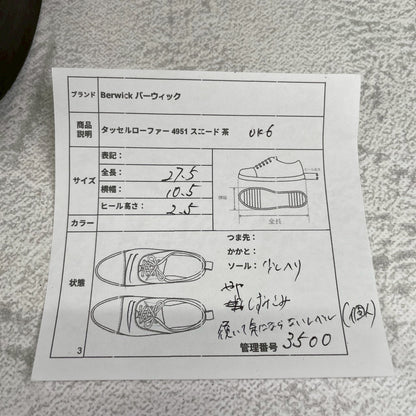 ブランド Berwick バーウィック
商品説明 タッセルローファー 4951 スエード 茶 UK6
サイズ
表記：
全長： 27.5
横幅： 10.5
ヒール高さ： 2.5
横幅
全長
カラー
状態
つま先：
かかと：
ソール： 少しヘり
履いて気にならないレベル
(個人)
管理番号 3500
3